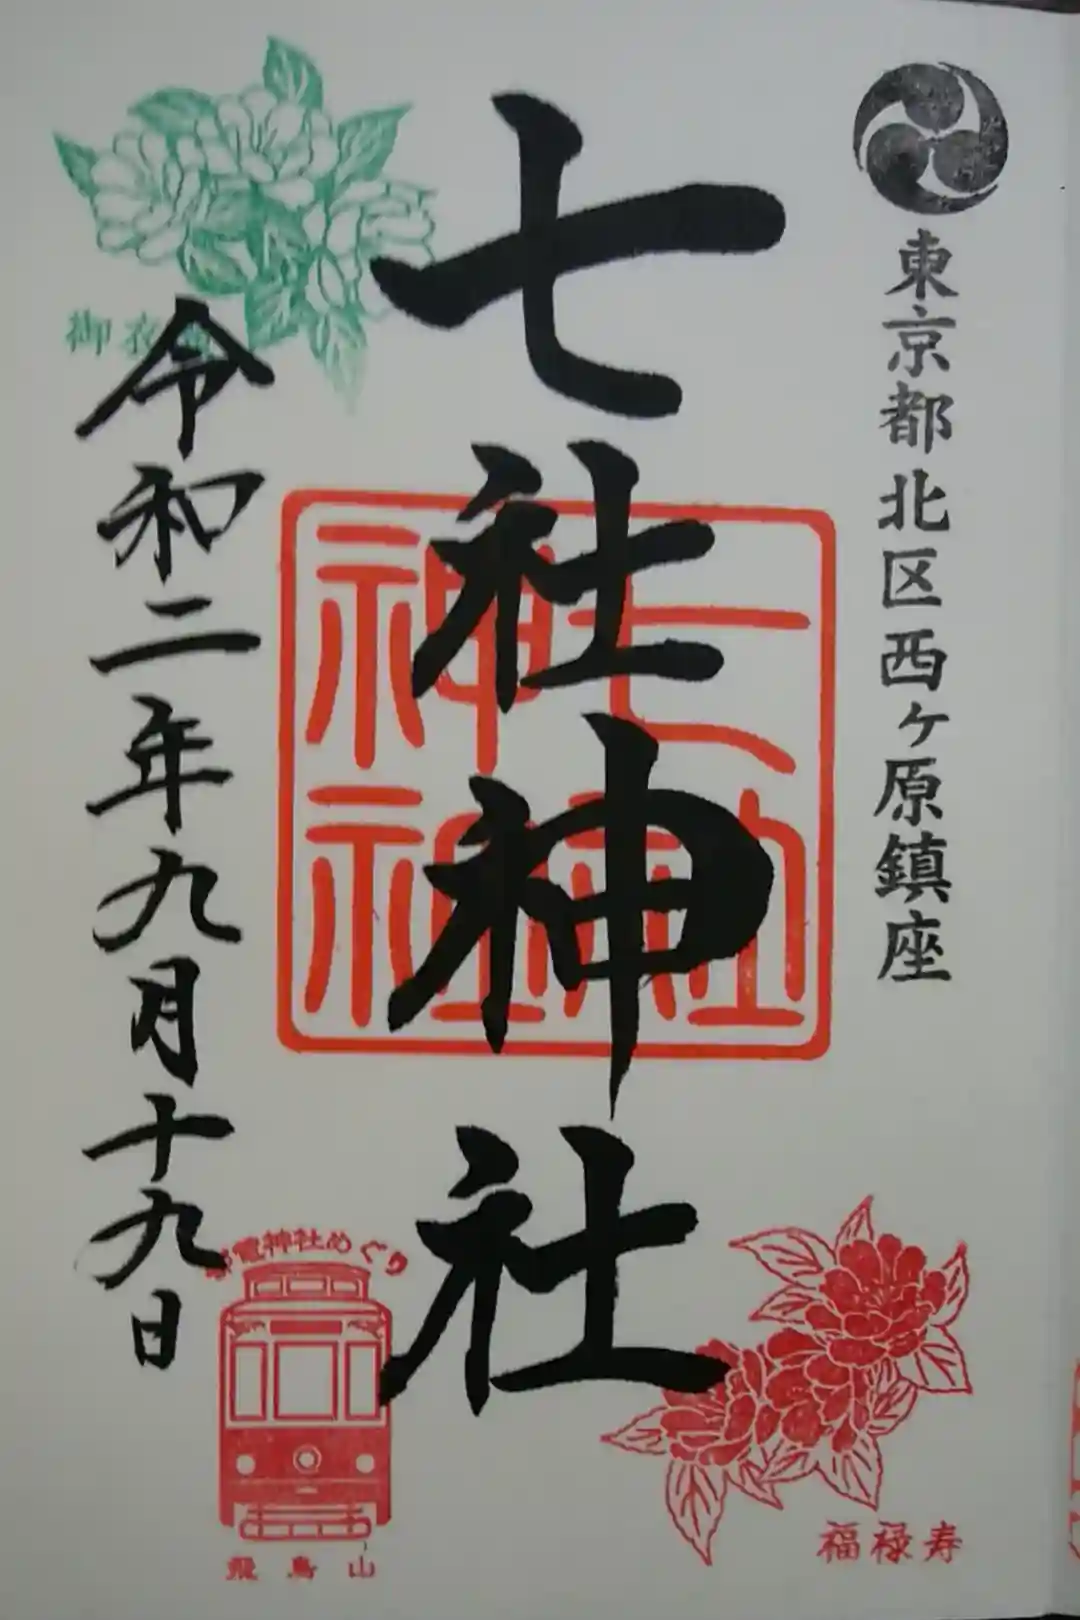 東京都北区西ヶ原鎮座
七社神社
七社神社
令和二年九月十九日
御衣
電神社めぐり
飛鳥山
福禄寿